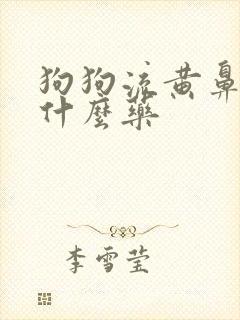 狗狗流黄鼻
什麼藥
李雪莹